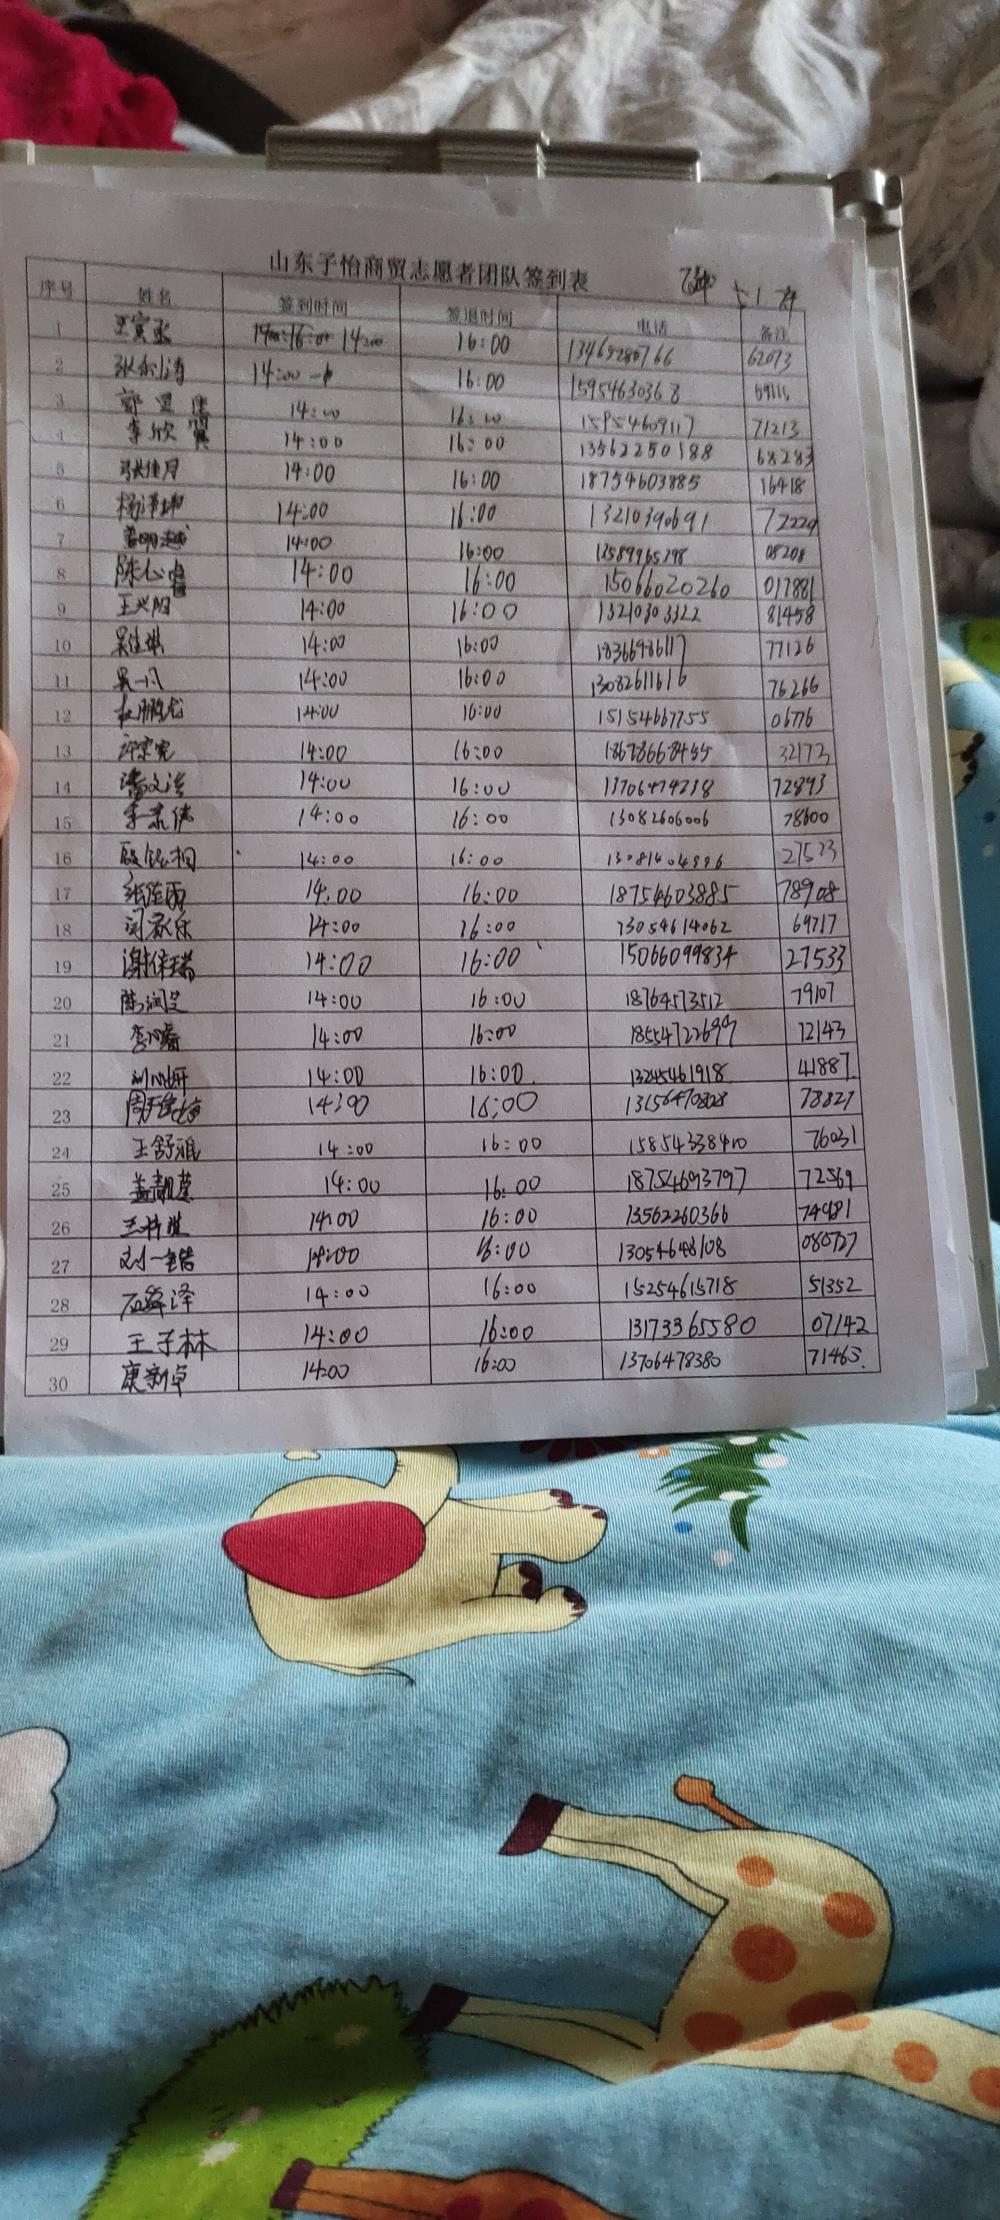 山东子怡商贸志愿者团队签到表
序号 姓名 签到时间 签退时间 电话 备注
1 14:00 16:00 62073
2 14:00 16:00 15954630368
3 14:00 16:00 15954609117 71213
4 李欣 14:00 16:00 13562250188 68283
5 张佳月 14:00 16:00 18754603885 16418
6 14:00 16:00 13210390691 72229
7 14:00 16:00 08208
8 陈心 14:00 16:00 15066020260 017881
9 王兴阳 14:00 16:00 13210303322 81458
10 14:00 16:00 18366986117 77126
11 吴一凡 14:00 16:00 13082611616 76266
12 14:00 16:00 15154667755 06776
13 14:00 16:00 32172
14 潘文洁 14:00 16:00 13706474238 72893
15 14:00 16:00 13082606006 78600
16 14:00 16:00 27533
17 14:00 16:00 18754603885 78908
18 14:00 16:00 13054614062 69717
19 谢佳瑞 14:00 16:00 15066099834 27533
20 14:00 16:00 18764573512 79107
21 14:00 16:00 18554722699 72143
22 刘心妍 14:00 16:00 13245461918 41887
23 14:00 16:00 78827
24 王舒雅 14:00 16:00 15854338410 76031
25 14:00 16:00 18754693797 72569
26 14:00 16:00 13562260366 74981
27 刘一诺 14:00 16:00 13054648108 080727
28 石泽 14:00 16:00 15254615718 51352
29 王子林 14:00 16:00 13173365580 07142
30 康新卓 14:00 16:00 13706478380 71463